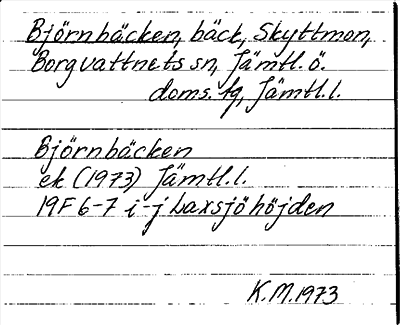 Björnbäcken, bäck, Skyttmon,
Borgvattnets sn, Jämtl. ö.
doms. tg, Jämtl. l.
Björnbäcken
ek (1973) Jämtl. l.
19F 6-7 i-j Laxsjöhöjden
K.M. 1973